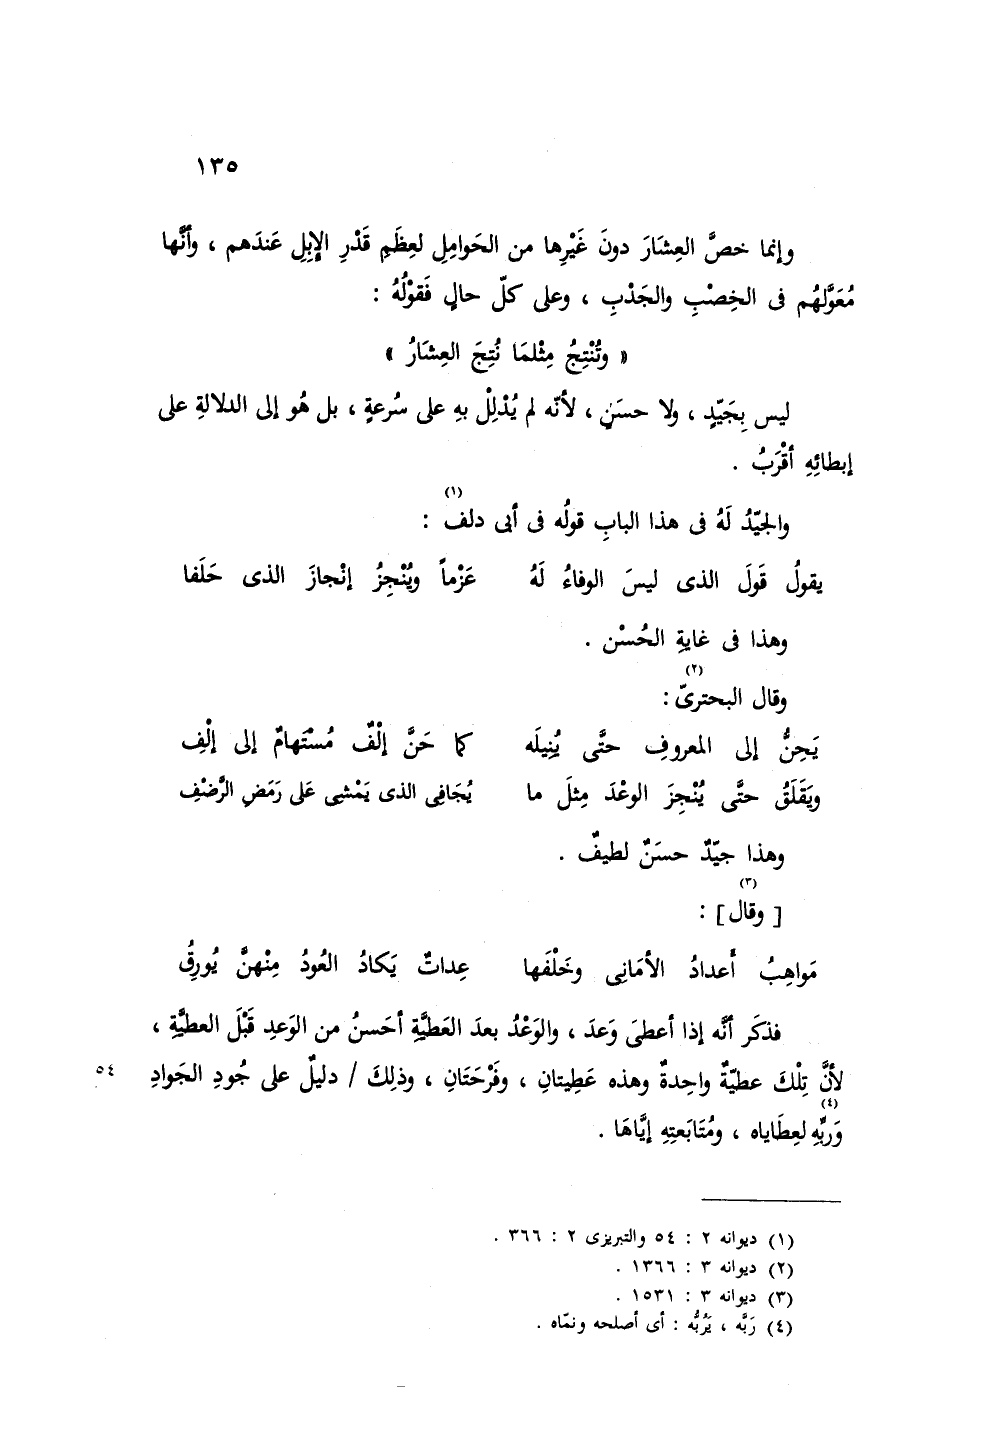 ١٣٥
وإنما خصَّ العِشَارَ دونَ غَيْرِها من الحَوامِلِ لعِظَمِ قَدْرِ الإِبِلِ عَندَهم ، وأنَّها
مُعَوَّلهُم فى الخِصْبِ والجَدْبِ ، وعلى كلّ حالٍ فَقوْلُهُ :
« وتُنْتِجُ مِثْلمَا نُتِجَ العِشَارُ »
ليس بِجَيّدٍ ، ولا حسَنٍ ، لأنّه لم يُدْلِلْ بهِ على سُرعةٍ ، بل هُو إلى الدلالةِ على
إبطائِهِ أقْرَبُ .
والجيّدُ لَهُ فى هذا البابِ قولُه فى أبى دلف (١) :
يقولُ قَولَ الذى ليسَ الوفاءُ لَهُ عَزْماً ويُنْجِزُ إنْجازَ الذى حَلَفا
وهذا فى غايةِ الحُسْن .
وقال البحترىّ (٢) :
يَحِنُّ إلى المعروفِ حتَّى يُنِيلَه كما حَنَّ إلْفٌ مُسْتَهامٌ إلى إلْفِ
ويَقَلَقُ حتَّى يُنْجِزَ الوعْدَ مِثلَ ما يُجَافِى الذى يَمْشِى عَلى رَمَضِ الرَّضْفِ
وهذا جيّدٌ حسَنٌ لطيفٌ .
[ وقال ] (٣) :
مَواهِبُ أَعدادُ الأمَانِى وخَلْفَها عِداتٌ يَكادُ العُودُ مِنْهنَّ يُورِقُ
فذكَر أنَّه إذا أعطىَ وَعدَ ، والوَعْدُ بعدَ العَطيَّةِ أحَسنُ من الوَعدِ قَبْلَ العطيَّةِ ،
لأنَّ تِلْكَ عطيّةٌ واحِدةٌ وهذه عَطِيتانِ ، وفَرْحَتَانِ ، وذلِكَ / دليلٌ على جُودِ الجَوادِ ٥٤
وَربِّهِ (٤) لعِطَاياه ، ومُتَابَعتِهِ إيَّاهَا .
(١) ديوانه ٢ : ٥٤ والتبريزى ٢ : ٣٦٦ .
(٢) ديوانه ٣ : ١٣٦٦ .
(٣) ديوانه ٣ : ١٥٣١ .
(٤) رَبَّه ، يَرُبُّه : أى أصلحه ونمّاه .